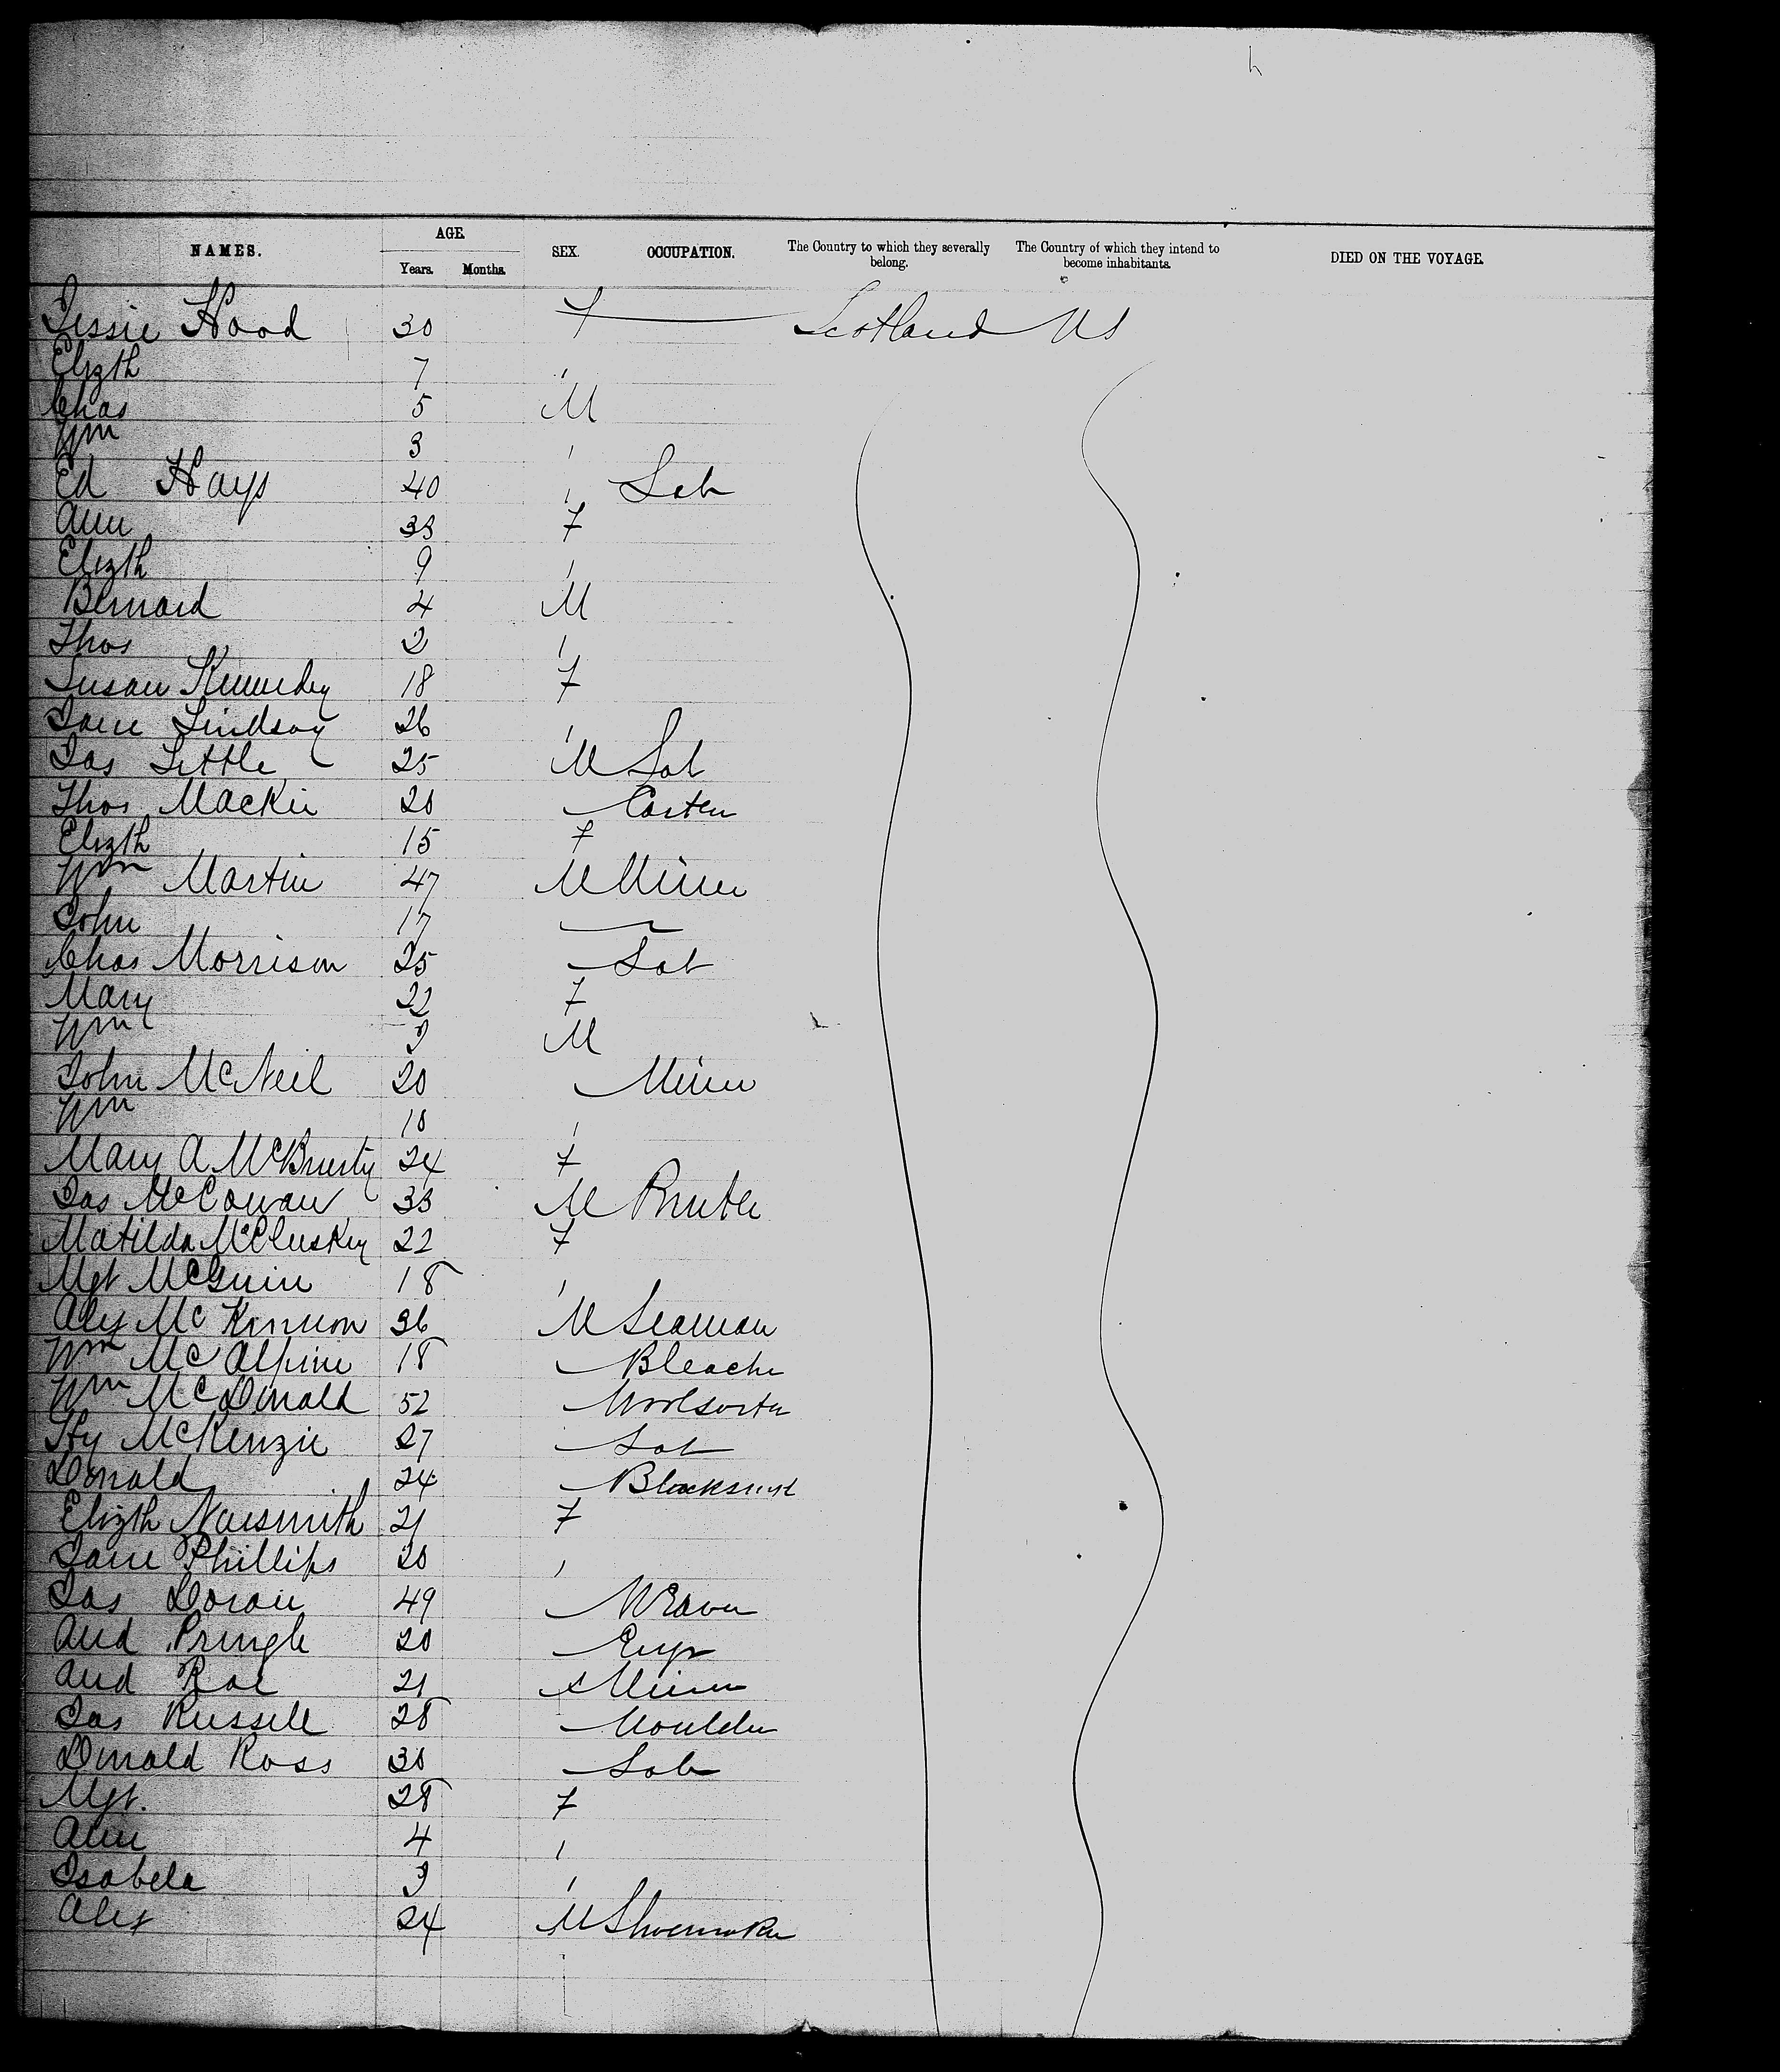 NAMES. AGE. Years. Months. SEX. OCCUPATION. The Country to which they severally belong. The Country of which they intend to become inhabitants. DIED ON THE VOYAGE.
Jessie Hood 30 F Scotland US
Elizth 7 "
Chas 5 M
Wm 3 "
Ed Hays 40 " Lab
Ann 33 F
Elizth 9 "
Bernard 4 M
Thos 2 "
Susan Kennedy 18 F
Jane Lindsay 26 "
Jas Little 25 M Lab
Thos Mackie 20 Carter
Elizth 15 F
Wm Martin 47 M Miner
John 17
Chas Morrison 25 Lab
Mary 22 F
Wm 3 M
John McNeil 20 Miner
Wm 18 "
Mary A. McBrinty 24 F
Jas McCowan 33 M Printer
Matilda McCluskey 22 F
Mgt McGuire 18 "
Alex McKinnon 36 M Seaman
Wm McAlpine 18 Bleacher
Wm McDonald 52 Woolsorter
Hy McKenzie 27 Lab
Donald 24 Blacksmith
Elizth Naismith 21 F
Jane Phillips 20 "
Jas Doran 49 Weaver
And Pringle 20 Engr
And Rae 21 Miner
Jas Russell 28 Moulder
Donald Ross 30 Lab
Mgt. 28 F
Ann 4 "
Isabela 3 "
Alex 24 M Shoemaker